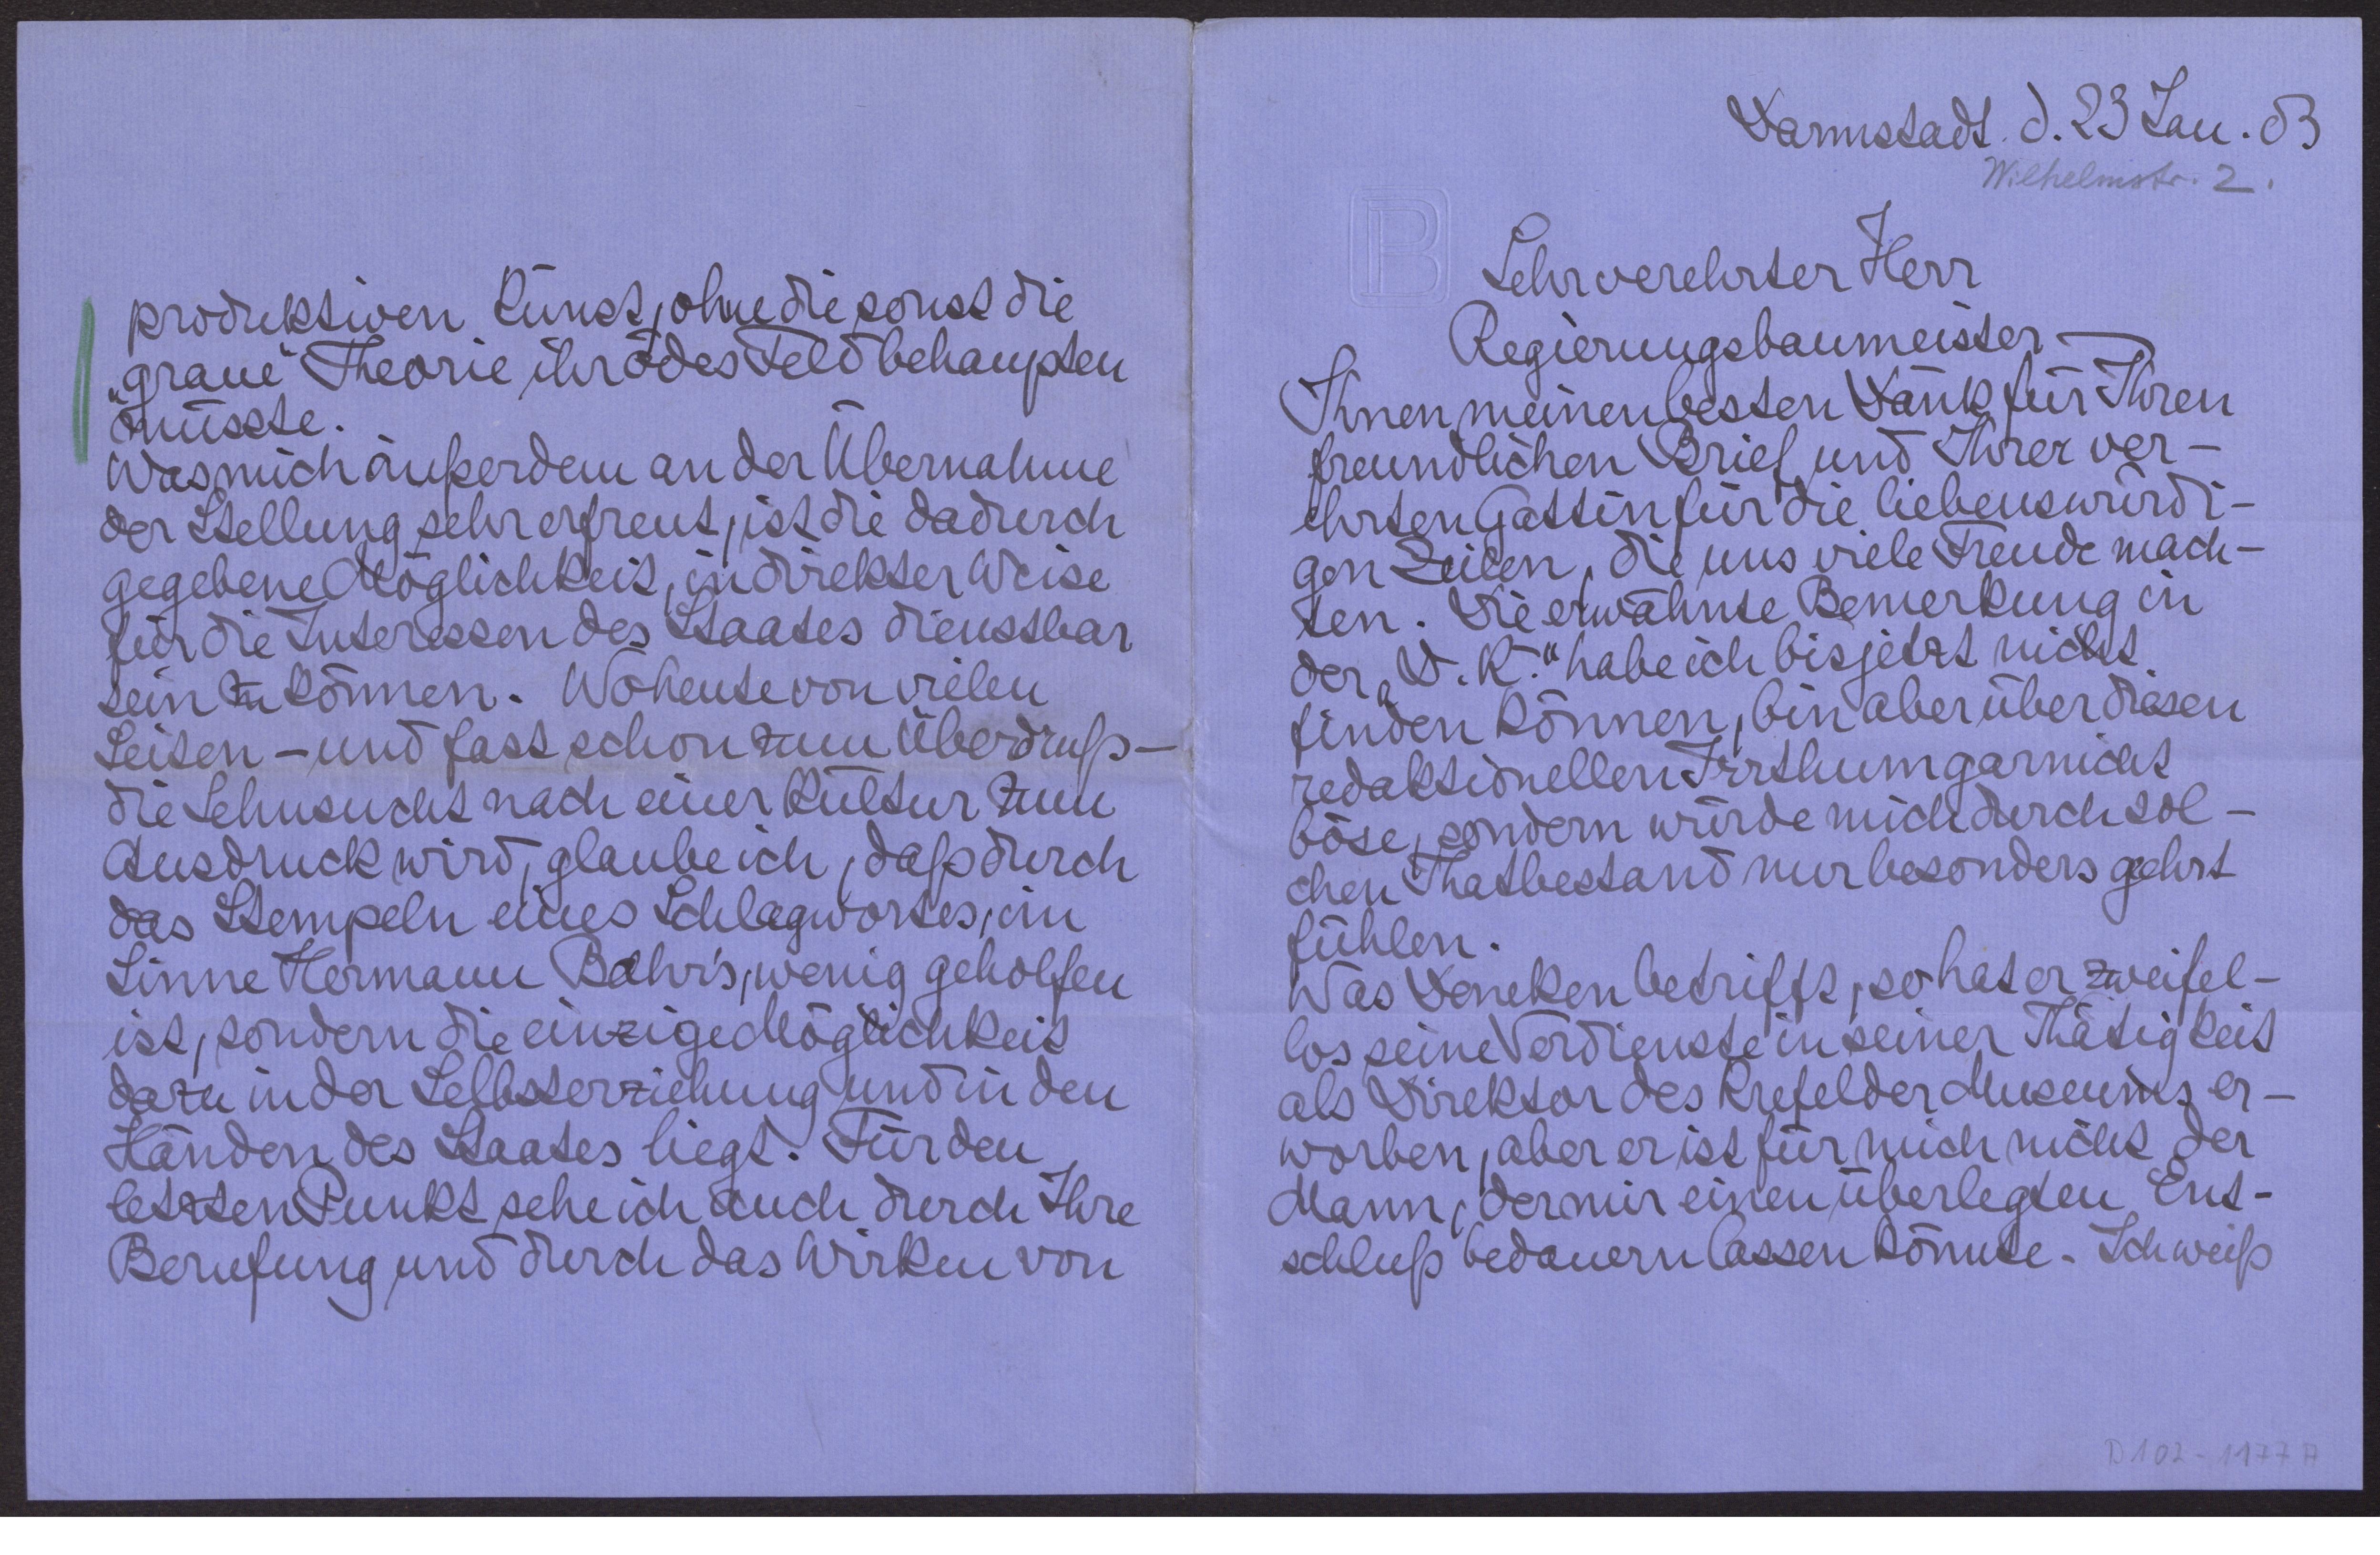 Darmstadt. d. 23 Jan. 03
Wilhelmstr. 2.
B
Sehr verehrter Herr
Regierungsbaumeister —
Ihnen meinen besten Dank für Ihren
freundlichen Brief und Ihrer ver-
ehrten Gattin für die liebenswürdi-
gen Zeilen, die uns viele Freude mach-
ten. Die erwähnte Bemerkung in
der „D. K." habe ich bis jetzt nicht
finden können, bin aber über diesen
redaktionellen Irrthum garnicht
böse, sondern würde mich durch sol-
chen Thatbestand nur besonders geehrt
fühlen.
Was Deneken betrifft, so hat er zweifel-
los seine Verdienste in seiner Thätigkeit
als Direktor des Krefelder Museums er-
worben, aber er ist für mich nicht der
Mann, der mir einen überlegten Ent-
schluß bedauern lassen könnte. Ich weiß
D 102 - 1177 A
produktiven Kunst, ohne die sonst die
„graue" Theorie ihr ödes Feld behaupten
müsste.
Was mich außerdem an der Übernahme
der Stellung sehr erfreut, ist die dadurch
gegebene Möglichkeit, in direkter Weise
für die Interessen des Staates dienstbar
sein zu können. Wo heute von vielen
Seiten – und fast schon zum Überdruß –
die Sehnsucht nach einer Kultur zum
Ausdruck wird, glaube ich, daß durch
das Stempeln eines Schlagwortes, im
Sinne Hermann Bahr's, wenig geholfen
ist, sondern die einzige Möglichkeit
dazu in der Selbsterziehung und in den
Händen des Staates liegt. Für den
letzten Punkt sehe ich auch durch Ihre
Berufung und durch das Wirken von